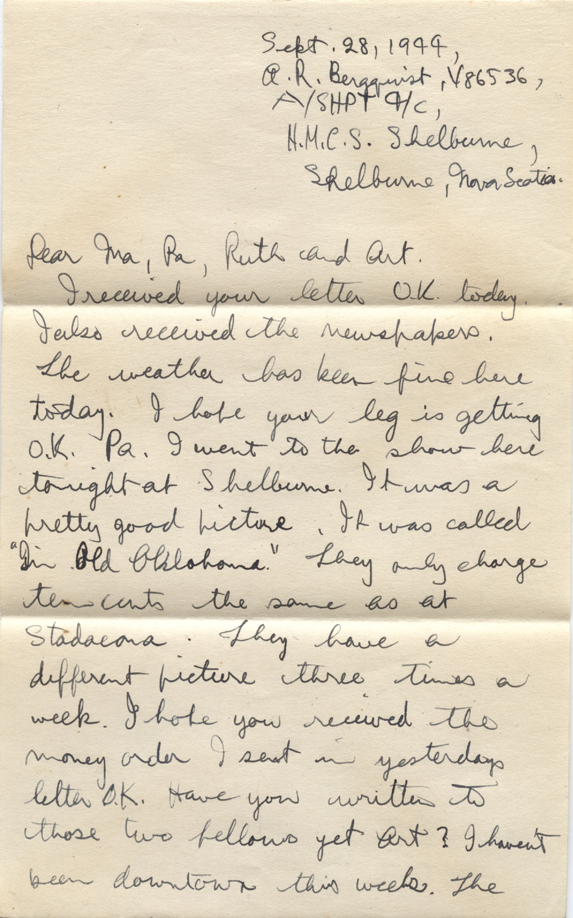 Sept. 28, 1944,
A. R. Bergquist, V86536,
A/SHPT 4/c,
H.M.C.S. Shelburne,
Shelburne, Nova Scotia.
Dear Ma, Pa, Ruth and Art.
I received your letter O.K. today.
I also received the newspapers.
The weather has been fine here
today. I hope your leg is getting
O.K. Pa. I went to the show here
tonight at Shelburne. It was a
pretty good picture. It was called
"In Old Oklahoma." They only charge
ten cents the same as at
Stadacona. They have a
different picture three times a
week. I hope you received the
money order I sent in yesterdays
letter O.K. Have you written to
those two fellows yet Art? I havent
been downtown this week. The